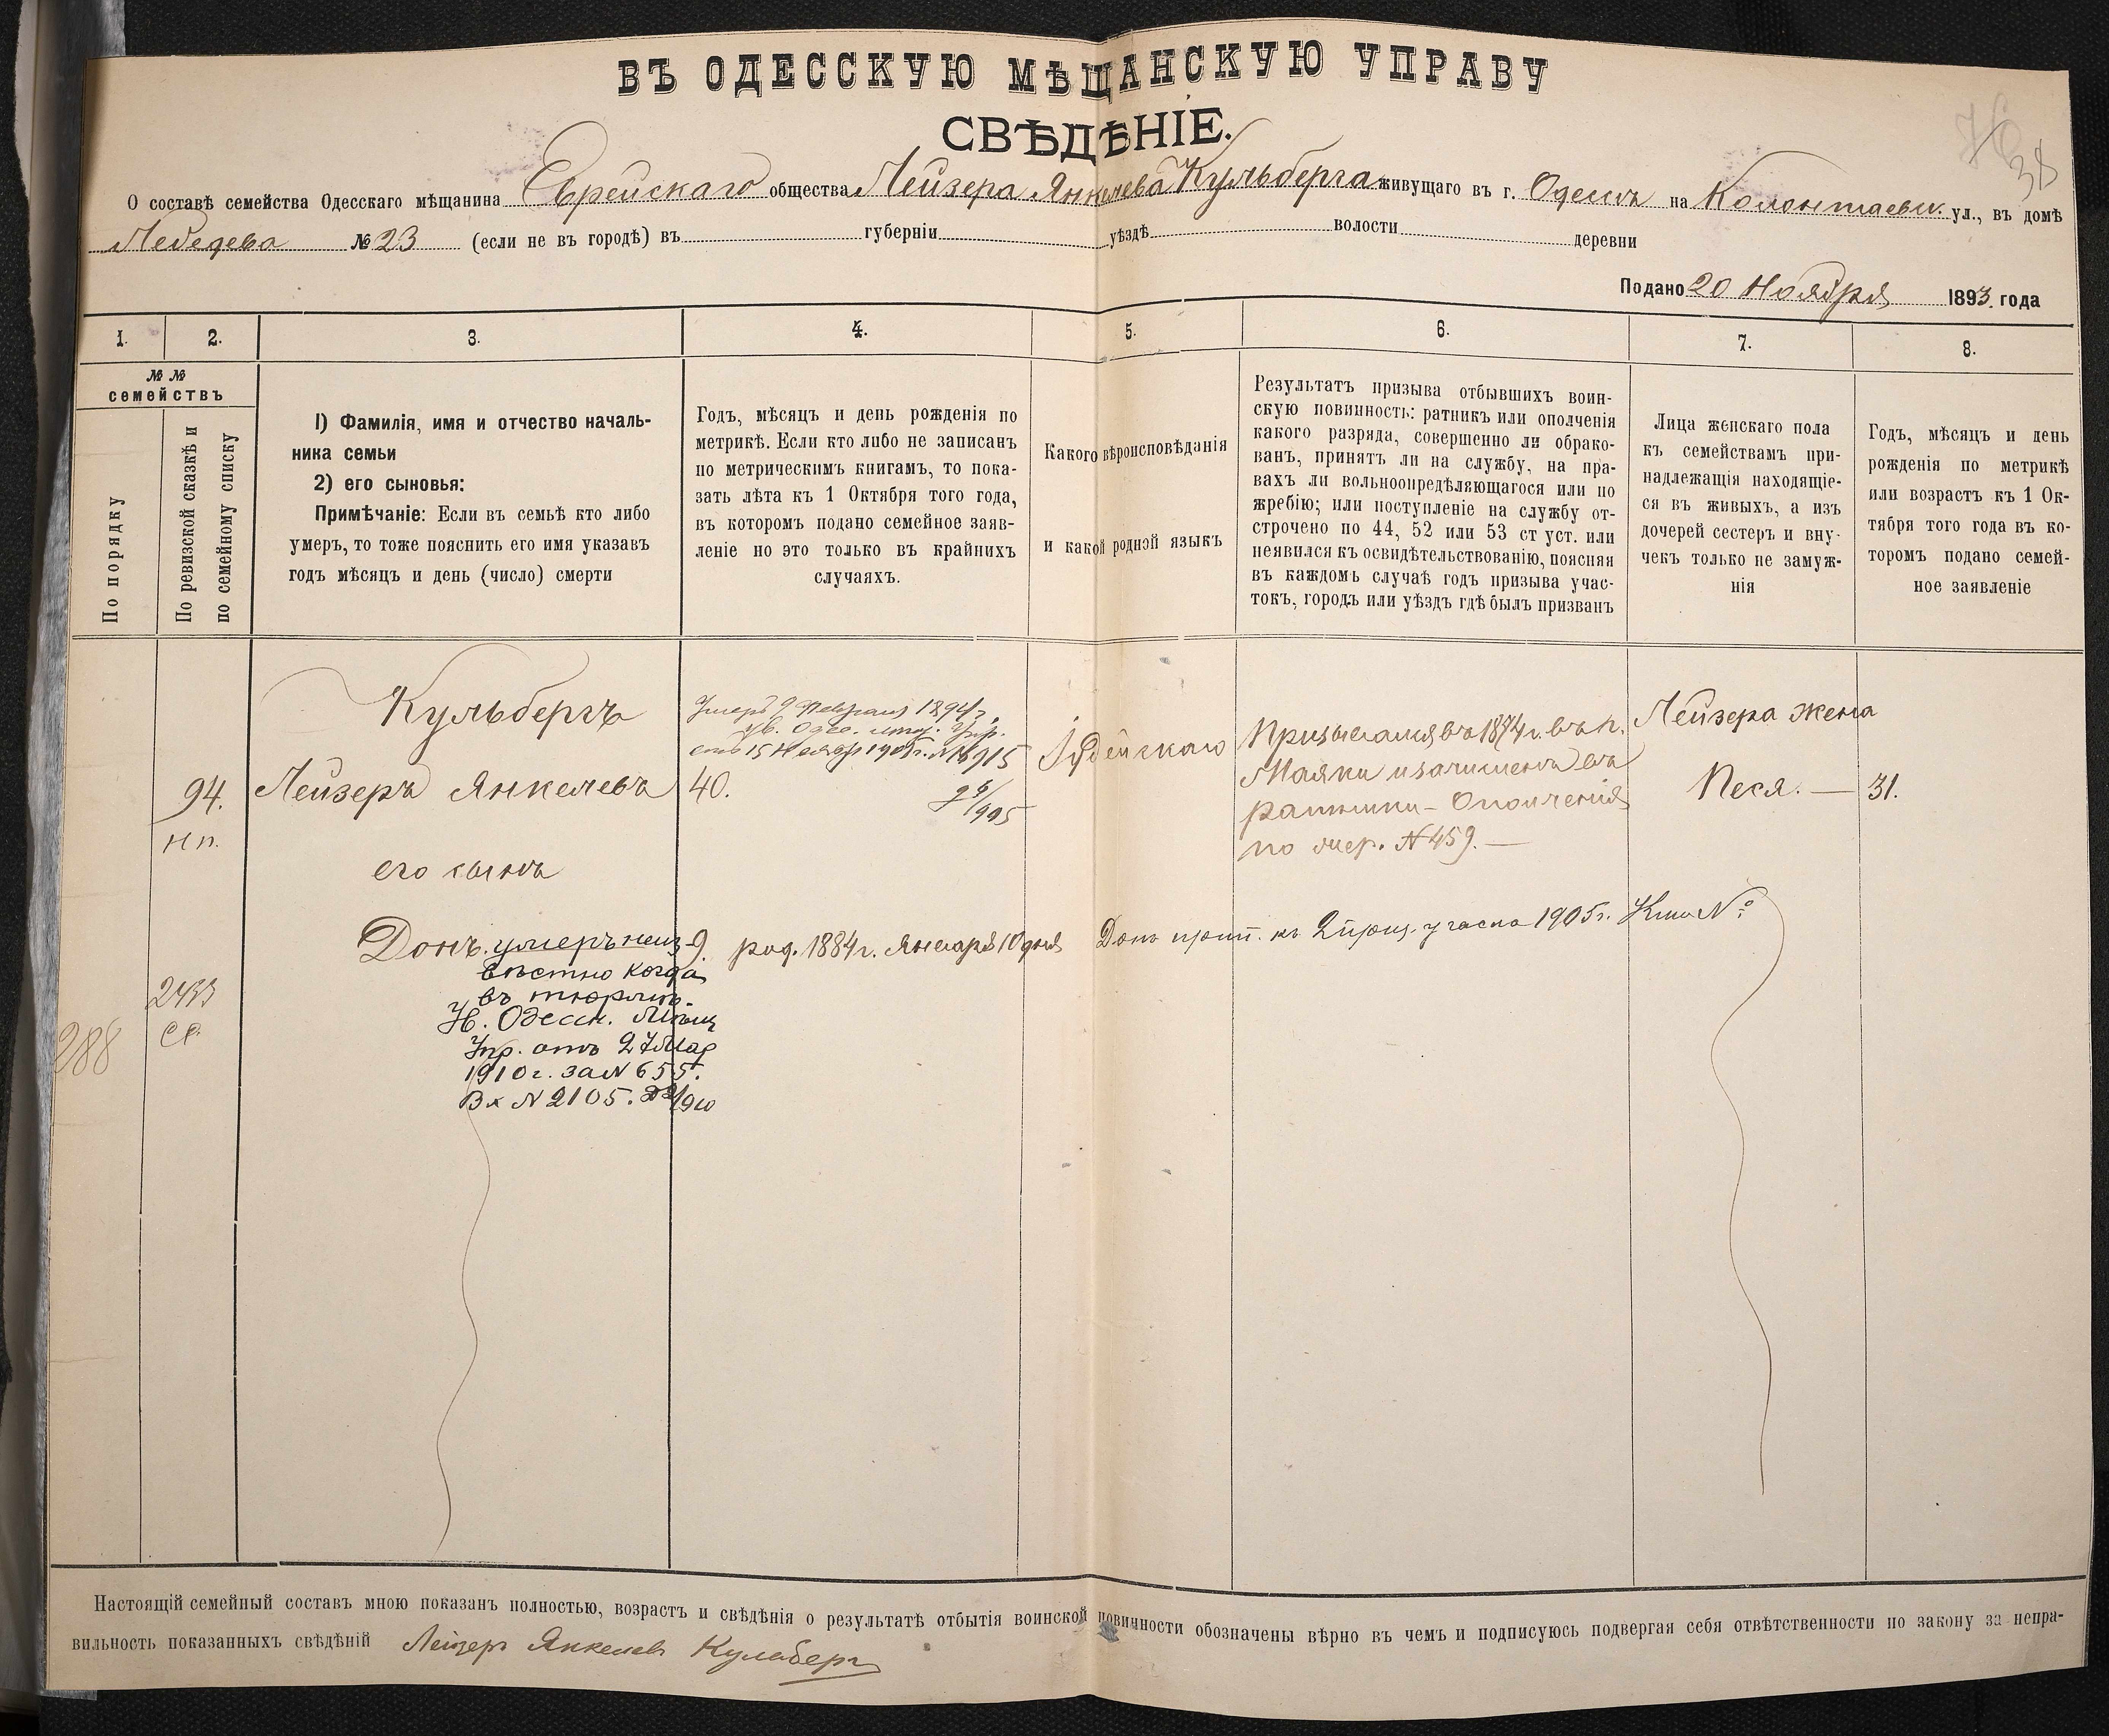 ВЪ ОДЕССКУЮ МѢЩАНСКУЮ УПРАВУ
СВѢДѢНІЕ.
38
О составѣ семейства Одесскаго мѣщанина Еврейскаго общества Лейзера Янкелева Кульберга живущаго въ г. Одессѣ на Колонтаевк. ул., въ домѣ
Лебедева № 23 (если не въ городѣ) въ губерніи уѣздѣ волости деревни
Подано 20 Ноября 1893. года
1. 2. 3. 4. 5. 6. 7. 8.
№ №
семействъ
По порядку
По ревизской сказкѣ и
по семейному списку
1) Фамилія, имя и отчество началь-
ника семьи
2) его сыновья:
Примѣчаніе: Если въ семьѣ кто либо
умеръ, то тоже пояснить его имя указавъ
годъ мѣсяцъ и день (число) смерти
Годъ, мѣсяцъ и день рожденія по
метрикѣ. Если кто либо не записанъ
по метрическимъ книгамъ, то пока-
зать лѣта къ 1 Октября того года,
въ которомъ подано семейное заяв-
леніе но это только въ крайнихъ
случаяхъ.
Какого вѣроисповѣданія
и какой родной языкъ
Результатъ призыва отбывшихъ воин-
скую повинность: ратникъ или ополченія
какого разряда, совершенно ли обрако-
ванъ, принятъ ли на службу, на пра-
вахъ ли вольноопредѣляющагося или по
жребію; или поступленіе на службу от-
строчено по 44, 52 или 53 ст уст. или
неявился къ освидѣтельствованію, поясняя
въ каждомъ случаѣ годъ призыва учас-
токъ, городъ или уѣздъ гдѣ былъ призванъ
Лица женскаго пола
къ семействамъ при-
надлежащія находящіе-
ся въ живыхъ, а изъ
дочерей сестеръ и вну-
чекъ только не замуж-
нія
Годъ, мѣсяцъ и день
рожденія по метрикѣ
или возрастъ къ 1 Ок-
тября того года въ ко-
торомъ подано семей-
ное заявленіе
Кульбергъ
Умеръ 9 Февраля 1894 г.
ув. Одес. мѣщ. Упр.
отъ 15 Ноябр 1905 г. № 16915
94. Лейзеръ Янкелевъ 40.
нп.
Іудейскаго
Призывался въ 1874 г. въ п.
Маяки и зачисленъ въ
ратники - Ополченія
по жер. № 459. —
Лейзера жена
Песя. — 31.
его сынъ
Донъ. умеръ неиз-
вѣстно когда
въ тюрьмѣ.
Ув. Одесск. Мѣщ
Упр. отъ 27 Мар
1910 г. за № 655.
Вх № 2105.
9. род. 1884 г. Января 10 дня
Донъ прип. къ 2 приз. участка 1905 г.
2433
288
Настоящій семейный составъ мною показанъ полностью, возрастъ и свѣдѣнія о результатѣ отбытія воинской повинности обозначены вѣрно въ чемъ и подписуюсь подвергая себя отвѣтственности по закону за непра-
вильность показанныхъ свѣдѣній Лейзеръ Янкелевъ Кульбергъ